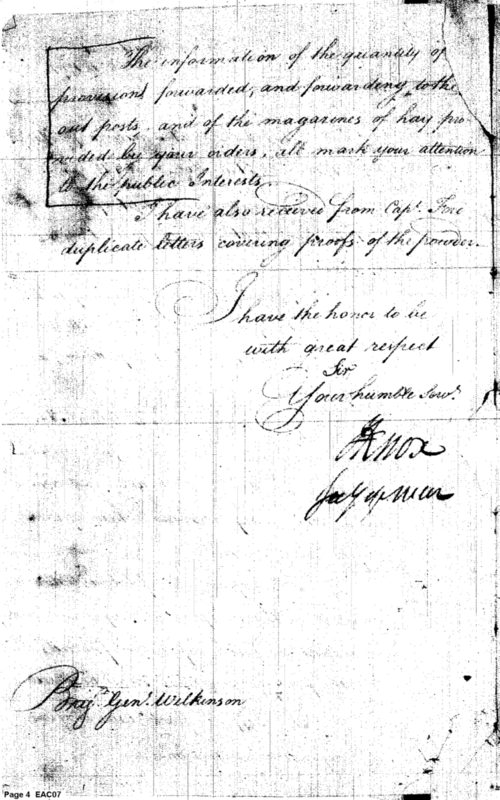 The information of the quantity of
provisions forwarded, and forwarding to the
out posts, and of the magazines of hay pro-
vided by your orders, all mark your attention
to the public Interests.
I have also received from Capt. Ford
duplicate letters covering proofs of the powder.
I have the honor to be
with great respect
Sir
Your humble Servt.
HKnox
Secy of War
Brigr. Genl. Wilkinson
Page 4 EAC07